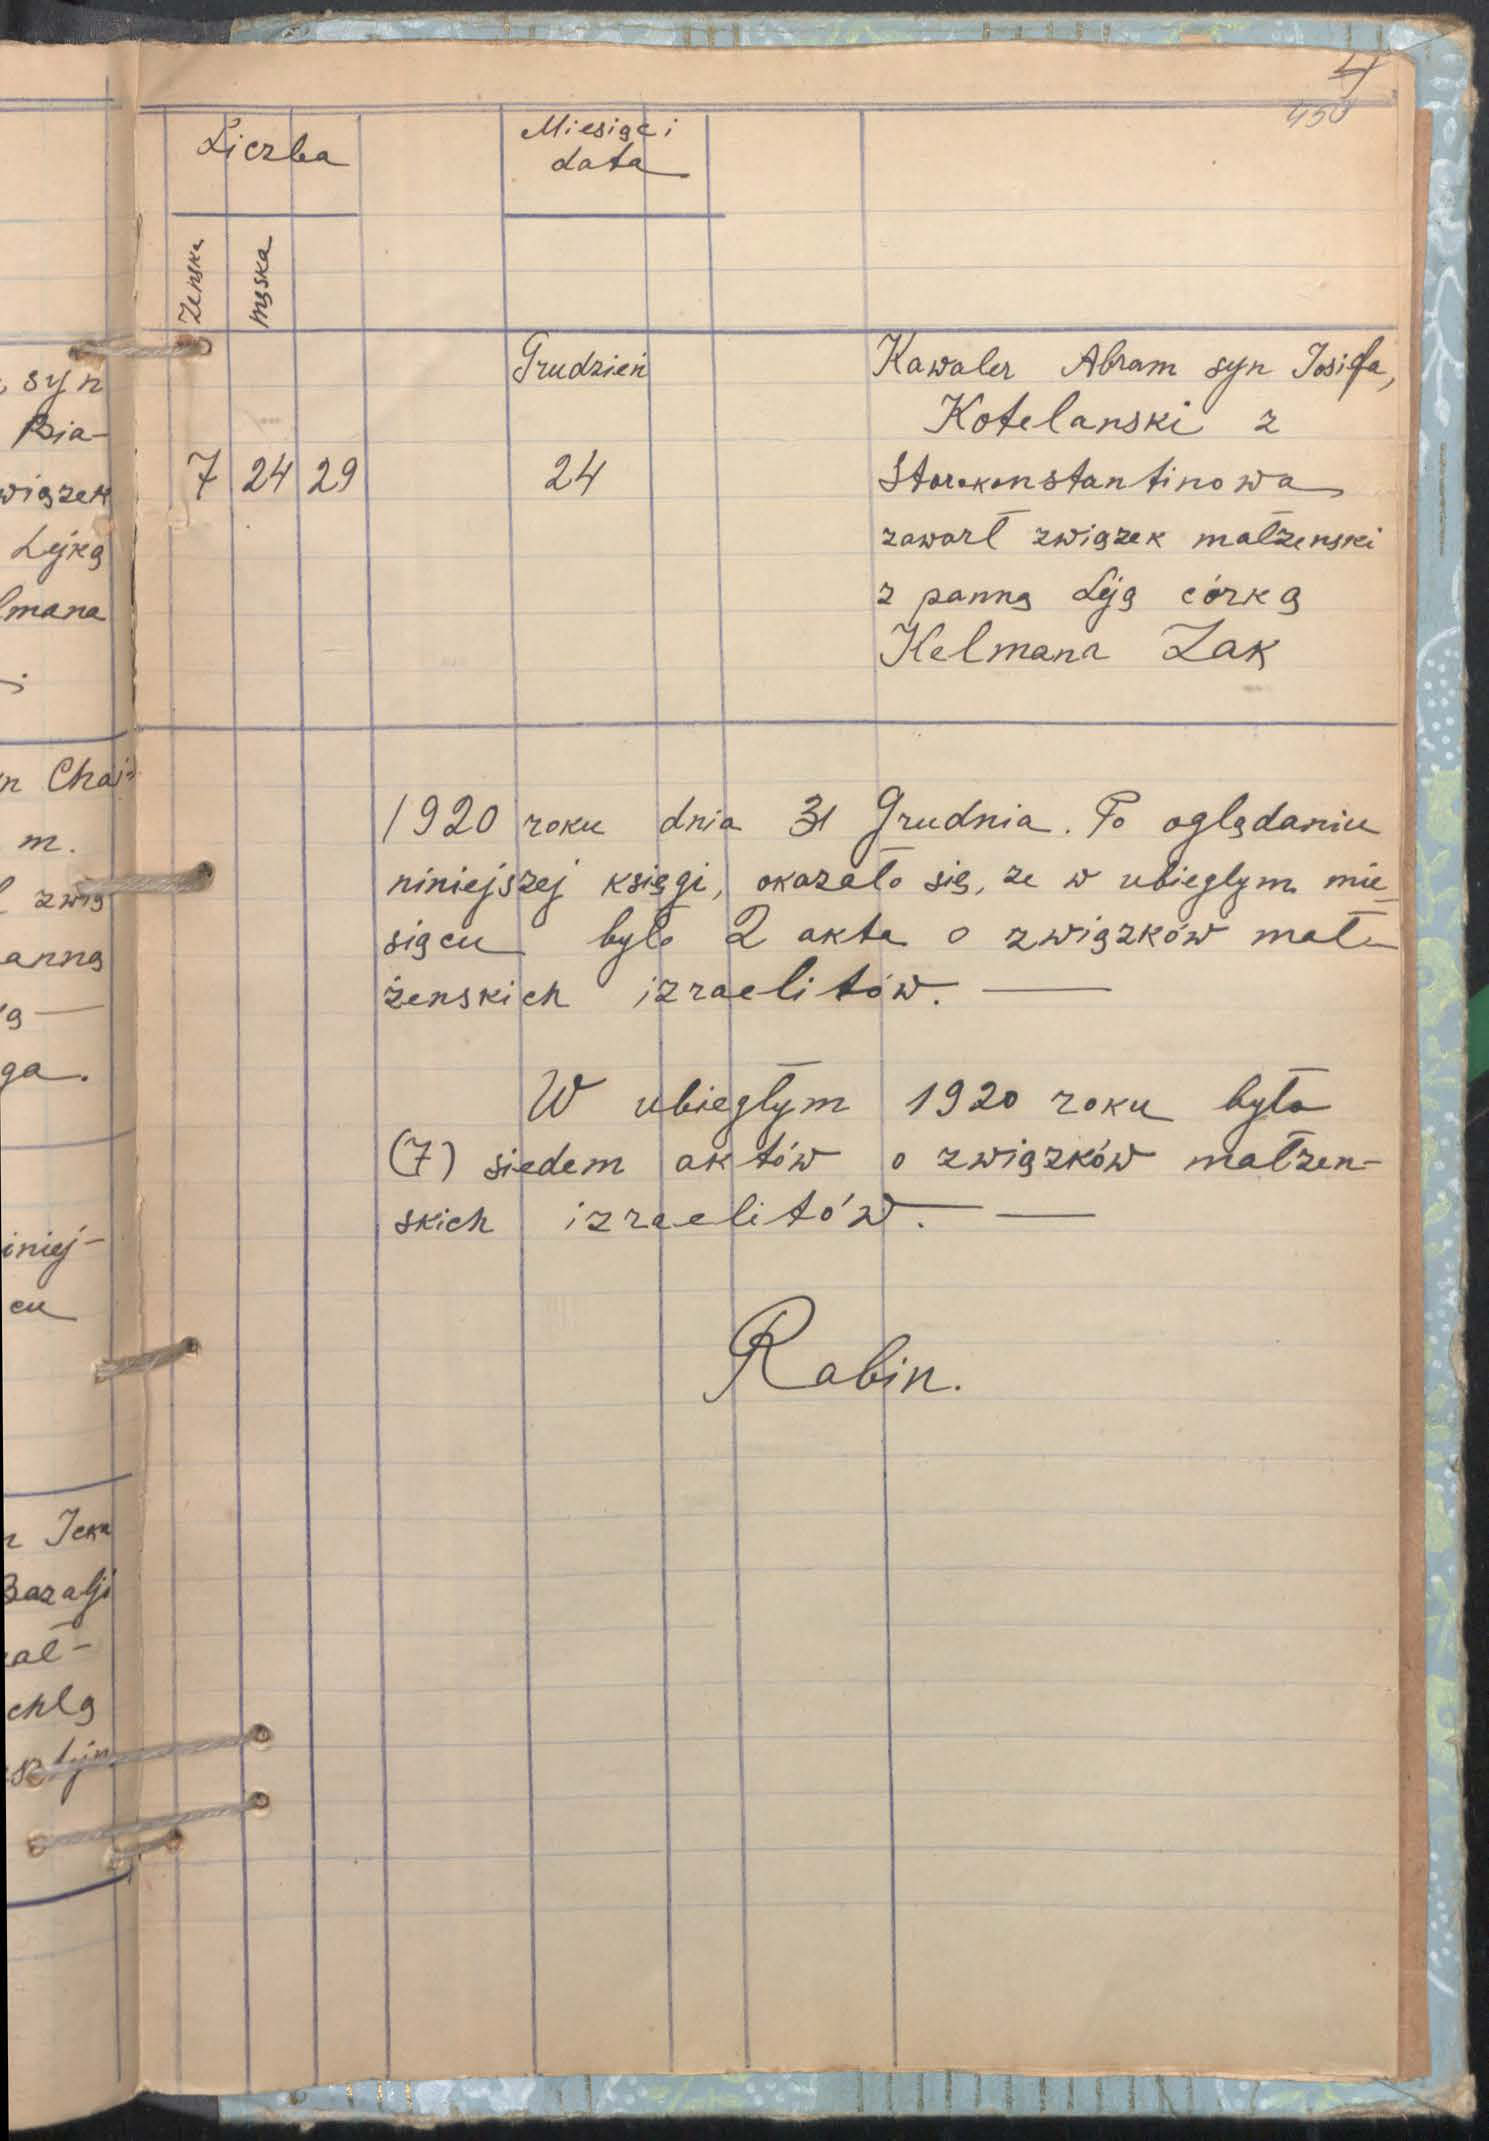 4
450
Liczba
Miesiąc i
data
Żenska
męska
Grudzień
7 24 29
24
Kawaler Abram syn Josifa,
Kotelanski z
Starokonstantinowa
zawarł związek małżenski
z panną Leją córką
Kelmana Zak
1920 roku dnia 31 Grudnia. Po oglądaniu
niniejszej księgi, okazało się, ze w ubiegłym mie-
siącu było 2 akta o związków mał-
żenskich izraelitów. —
W ubiegłym 1920 roku było
(7) siedem aktów o związków małżen-
skich izraelitów. —
Rabin.
syn
Bia-
wiązek
Lejką
lmana
n Chai-
m.
ł zwią
anną
ką —
ga.
iniej-
cu
n Icka
Bazalji
ał-
chlą
sztejn